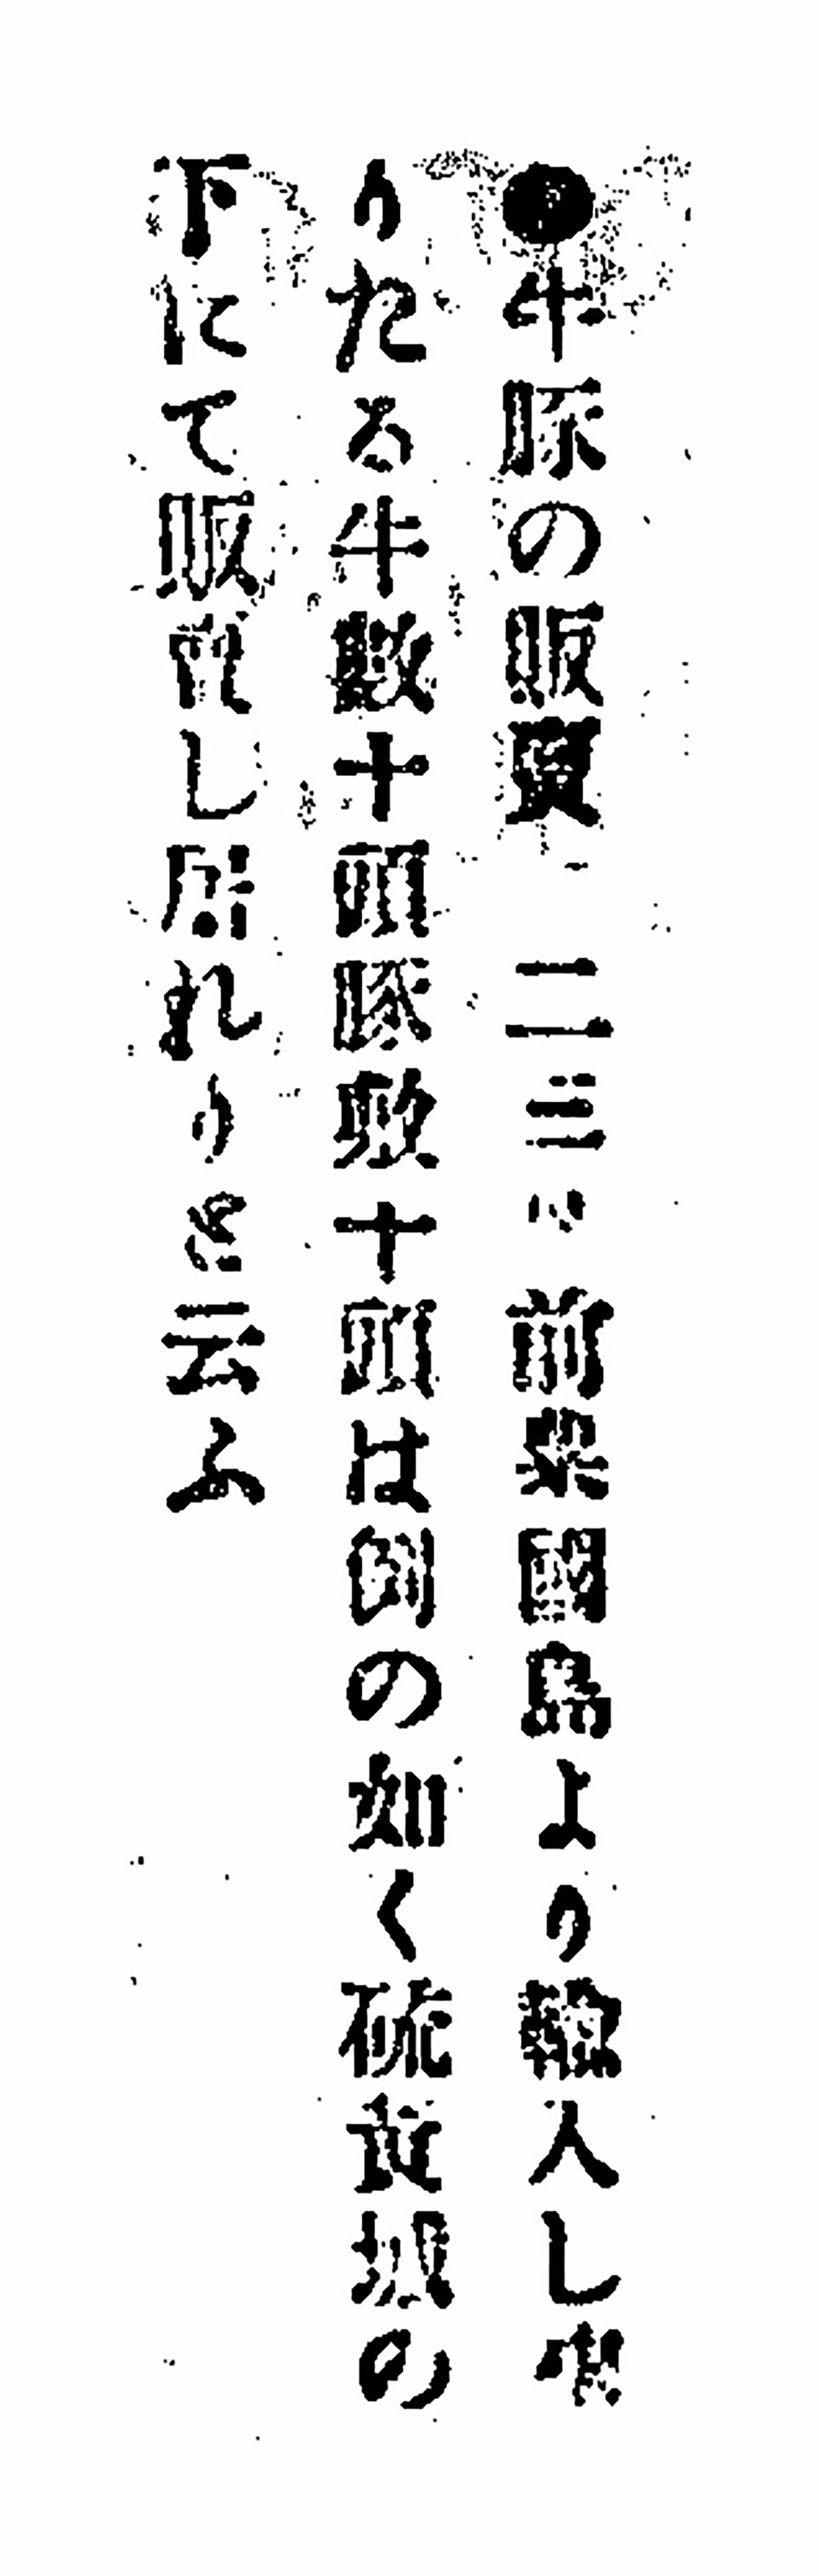 ●牛豚の販賣　二三日前粟國島より輸入し來
りたる牛數十頭豚數十頭は例の如く硫黄城の
下にて販賣し居れりと云ふ